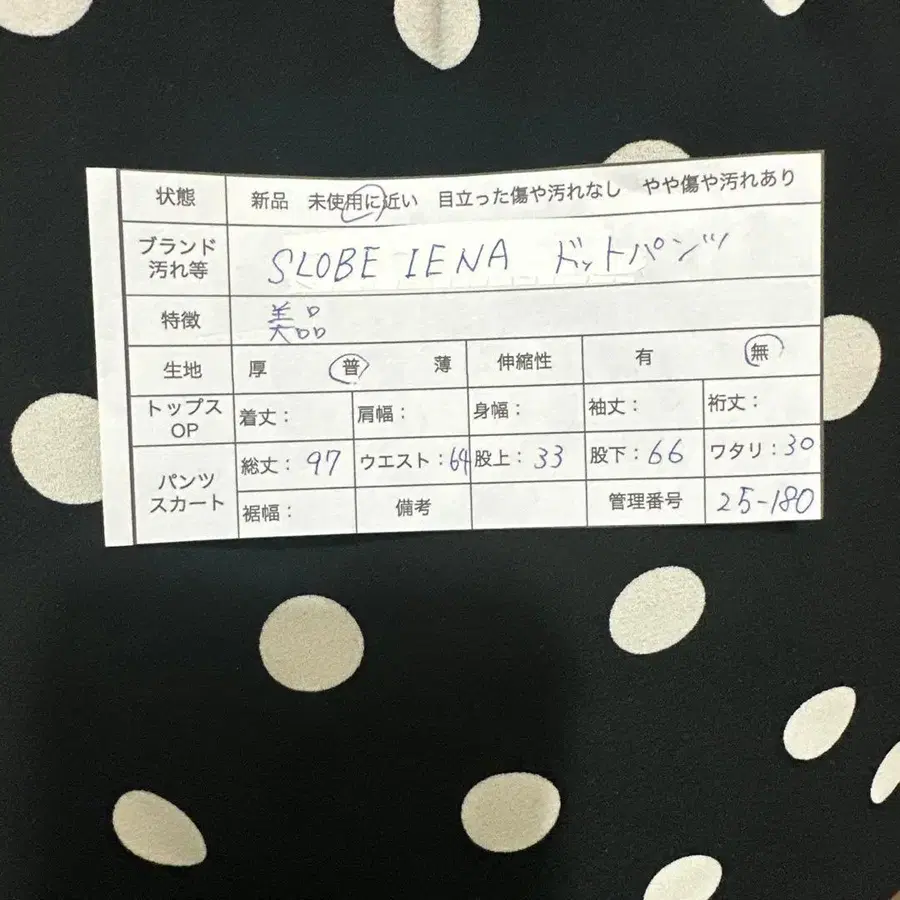 状態 新品 未使用に近い 目立った傷や汚れなし やや傷や汚れあり
ブランド
汚れ等 SLOBE IENA ドットパンツ
特徴 美品
生地 厚 普 薄 伸縮性 有 無
トップス
OP 着丈： 肩幅： 身幅： 袖丈： 裄丈：
パンツ
スカート 総丈：97 ウエスト：64 股上：33 股下：66 ワタリ：30
裾幅： 備考 管理番号 25-180